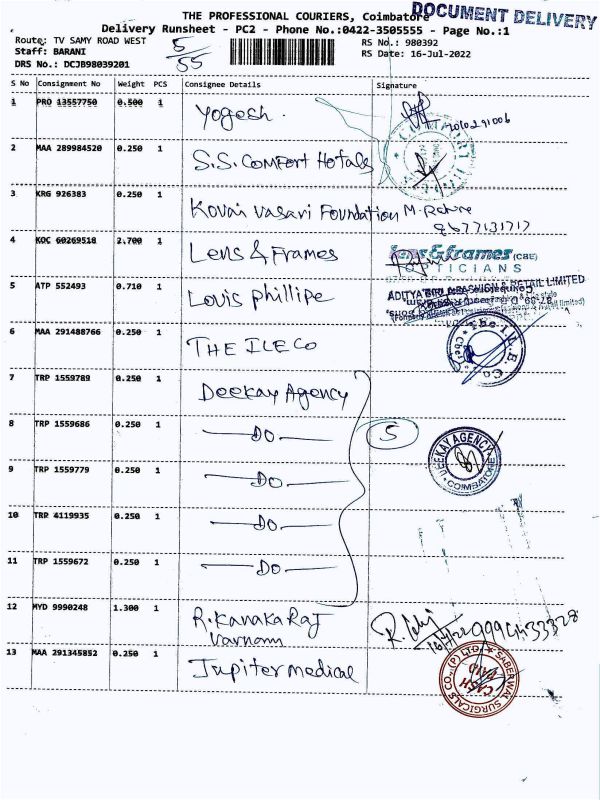 THE PROFESSIONAL COURIERS, Coimbatore
DOCUMENT DELIVERY
Delivery Runsheet - PC2 - Phone No.:0422-3505555 - Page No.:1
Route: TV SAMY ROAD WEST
RS No.: 980392
Staff: BARANI
RS Date: 16-Jul-2022
DRS No.: DCJB98039201
5/55
S No Consignment No Weight PCS Consignee Details Signature
1 PRO 13557750 0.500 1 Yogesh.
2 MAA 289984520 0.250 1 S.S. COMFORT Hotals
3 KRG 926383 0.250 1 Kovai vasavi Foundation
4 KOC 60269518 2.700 1 Lens & Frames
lens & frames (CBE)
OPTICIANS
5 ATP 552493 0.710 1 Louis phillipe
ADITYA BIRLA FASHION & RETAIL LIMITED
6 MAA 291488766 0.250 1 THE ILE CO
The I.L.E. Co
7 TRP 1559789 0.250 1 Deekay Agency
8 TRP 1559686 0.250 1 DO 5
DEEKAY AGENCY
COIMBATORE
9 TRP 1559779 0.250 1 DO
10 TRP 4119935 0.250 1 DO
11 TRP 1559672 0.250 1 DO
12 MYD 9990248 1.300 1 R. Kanaka Raj
Varnam
13 MAA 291345852 0.250 1 Jupiter medical
SABERWAL SURGICALS CO., (P) LTD.
CASH PAID